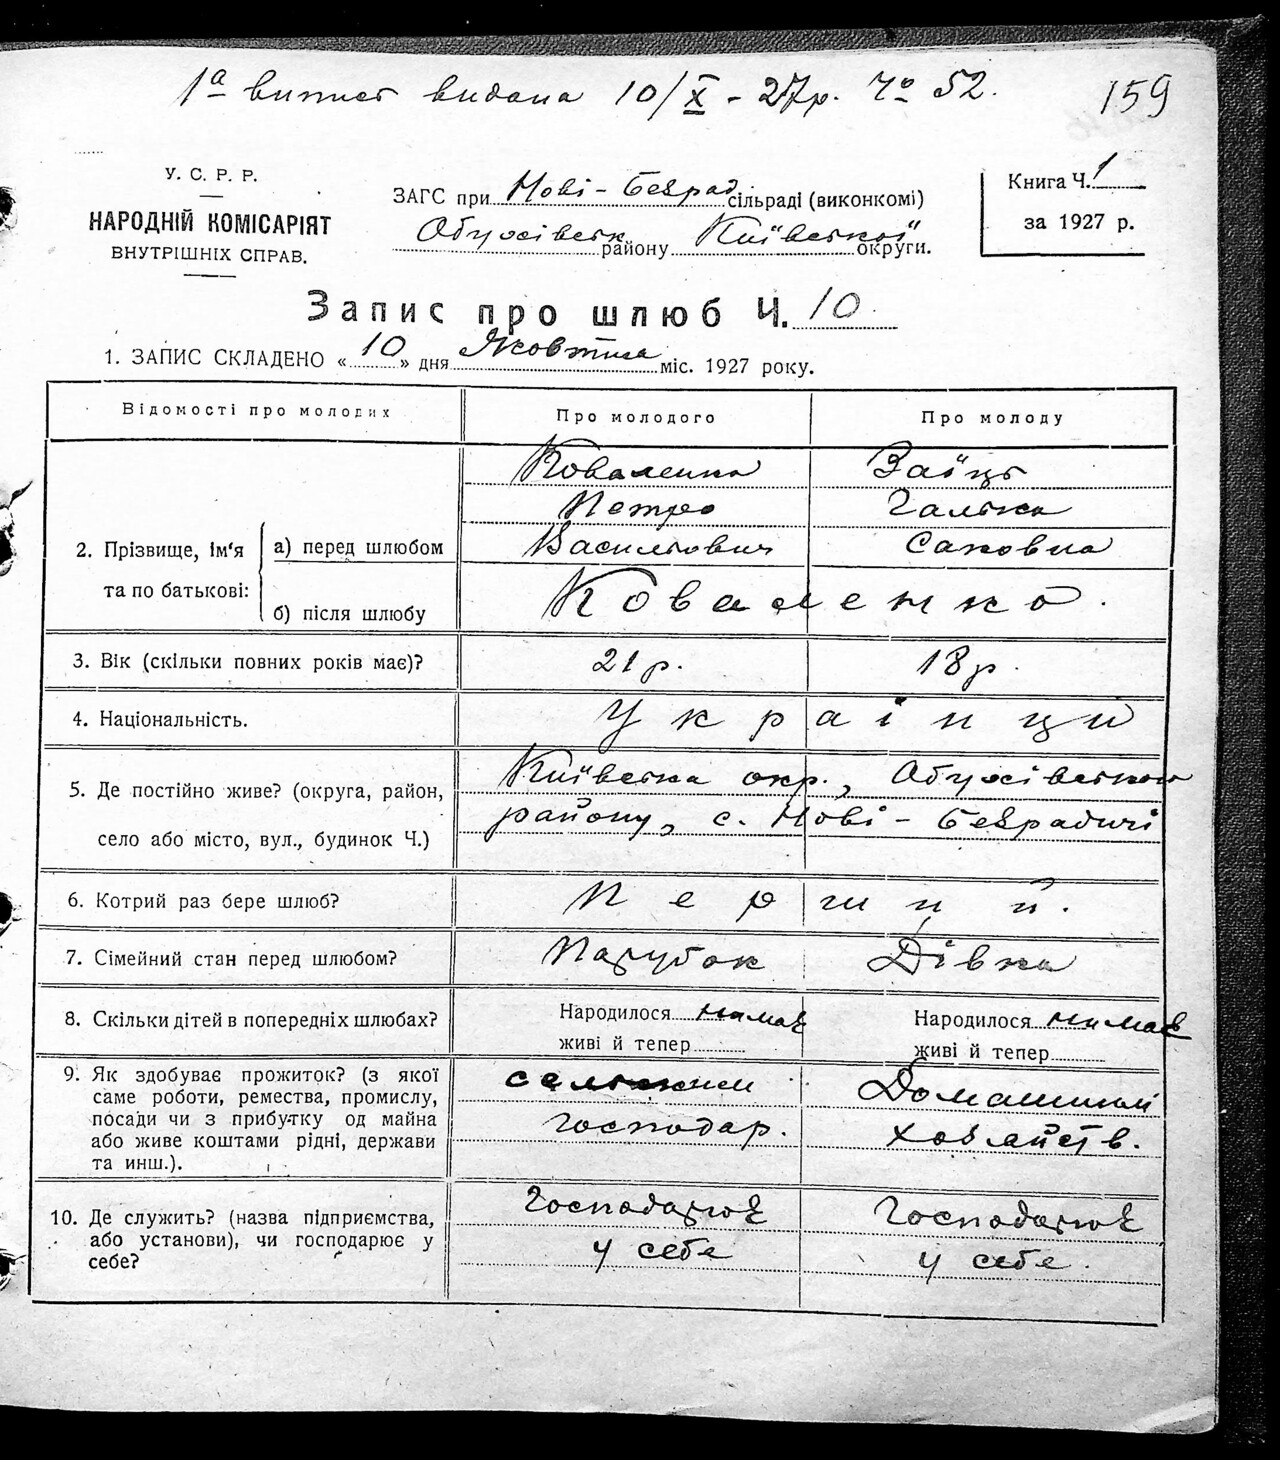 1а випис видана 10/X - 27р. Чо 52. 159
У. С. Р. Р.
НАРОДНІЙ КОМІСАРІЯТ
ВНУТРІШНІХ СПРАВ.
ЗАГС при Нові-Безрад сільраді (виконкомі)
Обухівськ району Київської округи.
Книга Ч. 1
за 1927 р.
Запис про шлюб Ч. 10
1. ЗАПИС СКЛАДЕНО « 10 » дня Жовтня міс. 1927 року.
Відомості про молодих Про молодого Про молоду
Коваленко Заїць
Петро Галька
2. Прізвище, ім'я а) перед шлюбом Васильович Саковна
та по батькові: б) після шлюбу Коваленко.
3. Вік (скільки повних років має)? 21 р. 18 р.
4. Національність. Українци
5. Де постійно живе? (округа, район, Київська окр., Обухівського
село або місто, вул., будинок Ч.) району, с. Нові-Безрадичі
6. Котрий раз бере шлюб? Перший.
7. Сімейний стан перед шлюбом? Парубок Дівка
8. Скільки дітей в попередніх шлюбах? Народилося нимає Народилося нимає
живі й тепер живі й тепер
9. Як здобуває прожиток? (з якої
саме роботи, ремества, промислу,
посади чи з прибутку од майна
або живе коштами рідні, держави
та инш.).
господар.
Домашньі
хозяйств.
10. Де служить? (назва підприємства,
або установи), чи господарює у
себе?
Господарює
у себе
Господарює
у себе.